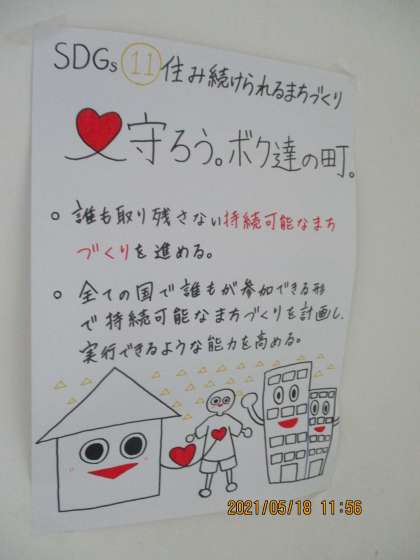 SDGs ⑪ 住み続けられるまちづくり
守ろう。ボク達の町。
○ 誰も取り残さない持続可能なまち
づくりを進める。
○ 全ての国で誰もが参加できる形
で持続可能なまちづくりを計画し、
実行できるような能力を高める。
2021/05/18 11:56